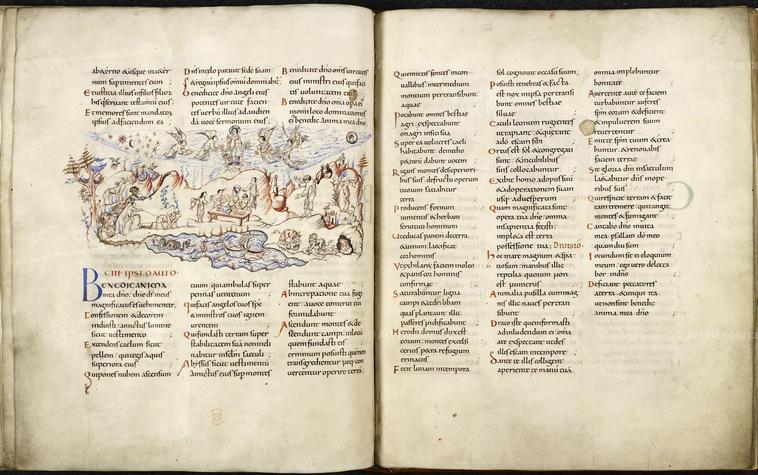 num super timentes eum ;
ipsius ad faciendum ea
Dns in celo parauit sede suam :
Benedicite dno angeli eius
Benedicite dno oms uirtutes
CIII IPSI DAUID
BENEDIC ANIMA
mea dno : dne ds meus
magnificatus es uehementer ;
Confessionem & decorem
induisti : amictus lumine
sicut uestimento
Extendens caelum sicut
pellem : qui tegis aquis
superiora eius
Qui ponis nubem ascensum
tuum : qui ambulas super
pennas uentorum
Qui facis angelos tuos sps
& ministros tuos ignem
urentem
Qui fundasti terram super
stabilitatem sua non incli
nabitur in sclm saeculi ;
Abyssus sicut uestimentu
amictus eius sup montes
stabunt aquae
Ab increpatione tua fugi
ent : a uoce tonitrui tui
formidabunt
Ascendunt montes & de
scendunt campi : in locu
quem fundasti eis
Terminum posuisti quem non
transgredientur neq. con
uertentur operire terra ;
Qui emittis fontes in con
uallibus : inter medium
montium pertransibunt
aquae
Potabunt omnes bestiae
agri : expectabunt
onagri in siti sua
Super ea uolucres caeli
habitabunt : de medio
petraru dabunt uocem
Rigans montes de superiori
bus suis : de fructu operum
tuorum satiabitur
terra
Producens foenum
iumentis & herbam
seruituti hominum
Ut educas panem de terra
& uinum laetificet
cor hominis
Ut exhilaret faciem in oleo
& panis cor hominis
confirmet
Saturabuntur ligna
campi & cedri libani
quas plantauit illic
passeres nidificabunt
Herodii domus dux est
eorum : montes excelsi
ceruis petra refugium
erinaciis
Fecit lunam in tempora
sol cognouit occasu suum ;
Posuisti tenebras & facta
est nox in ipsa pertransi
bunt omnes bestiae
siluae
Catuli leonum rugientes
ut rapiant : & quaerant
a do escam sibi
Ortus est sol & congregati
sunt : & in cubilibus
suis collocabuntur
Exibit homo ad opus suu
& ad operationem suam
usq. ad uesperum
Quam magnificata sunt
opera tua dne : omnia
in sapientia fecisti :
impleta est terra
possessione tua ; DIVISIO
Hoc mare magnum & spa
tiosum manibus : illic
reptilia quorum non
est numerus
Animalia pusilla cum mag
nis : illic naues pertran
sibunt
Draco iste quem formasti
ad inludendum ei : omia
a te expectant ut des
illis escam in tempore
Dante te illis colligent
aperiente te manu tua
omnia implebuntur
bonitate
Auertente aute te faciem
turbabuntur auferes
spm eorum & deficient
& in puluerem suum
reuertentur
Emitte spm tuum & crea
buntur : & renouabis
faciem terrae
Sit gloria dni in saeculum
laetabitur dns in ope
ribus suis
Qui respicit terram & facit
eam tremere : qui tangit
montes & fumigant
Cantabo dno in uita
mea psallam do meo
quam diu sum
Iocundum sit ei eloquium
meum : ego uero delecta
bor in dno
Deficiant peccatores
a terra : & iniqui ita
ut non sint benedic
anima mea dno